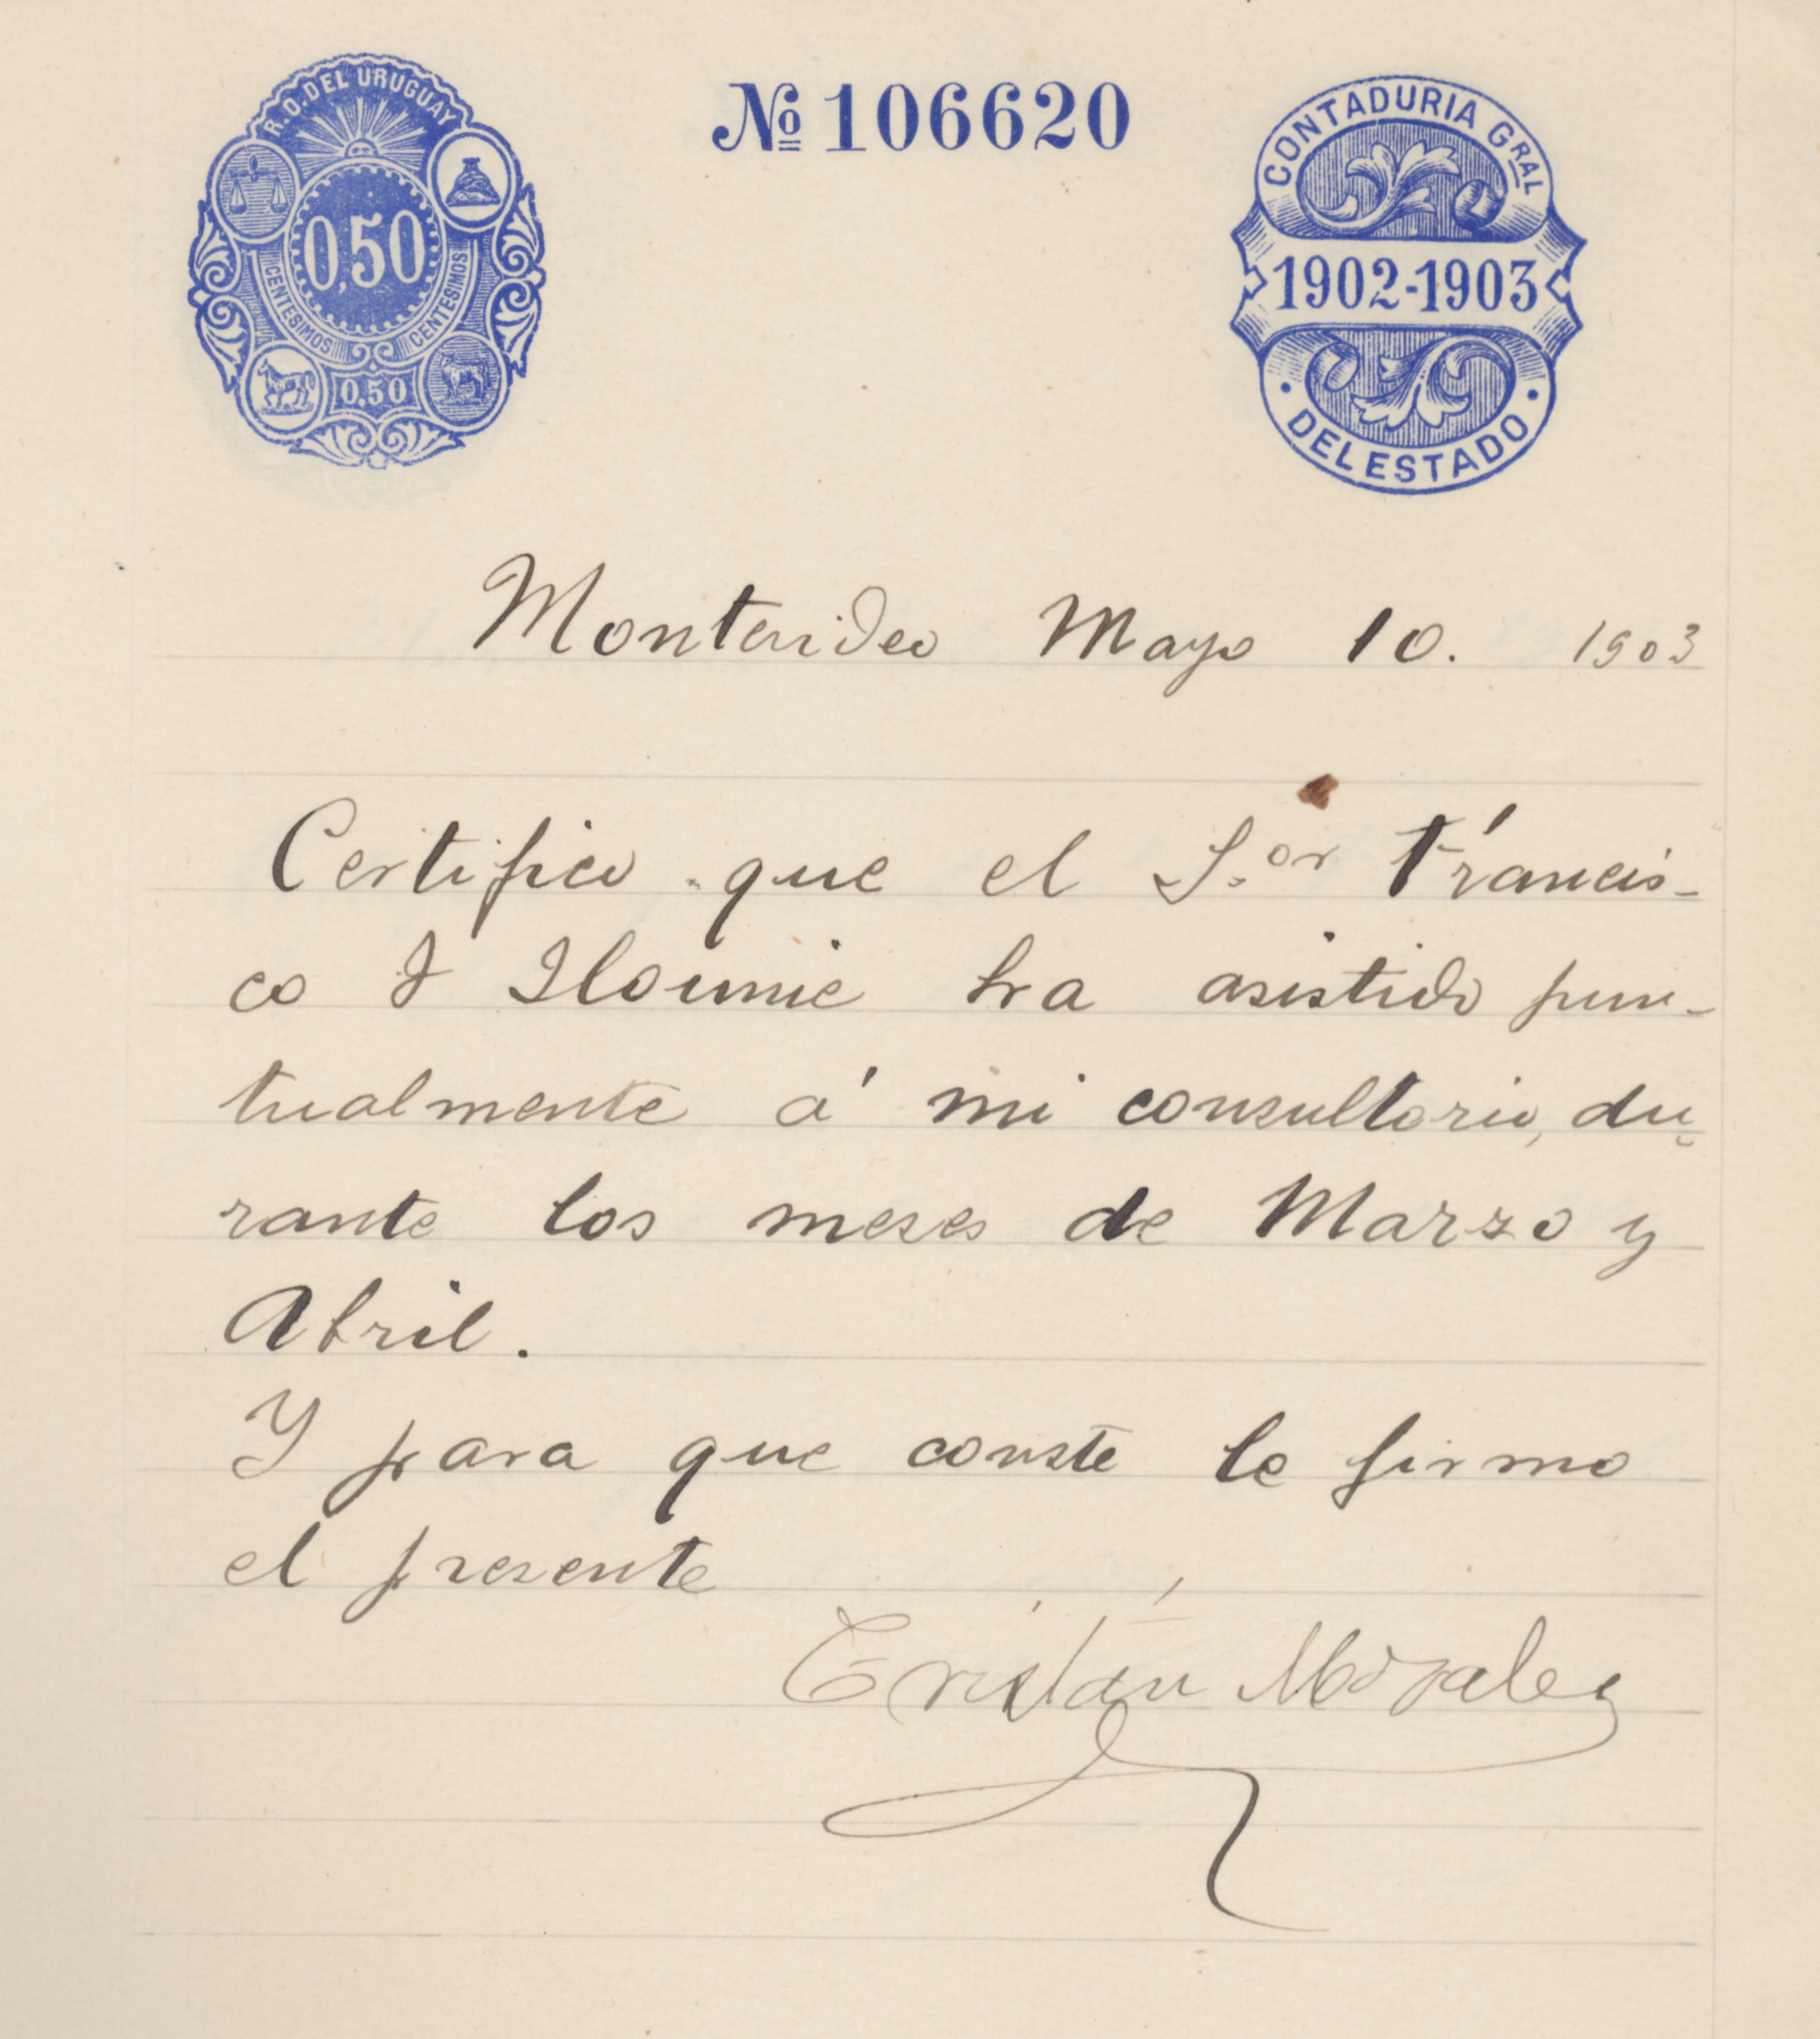 R. O. DEL URUGUAY
0,50
CENTESIMOS CENTESIMOS
0,50
Nº 106620
CONTADURIA GRAL
1902-1903
DEL ESTADO
Montevideo Mayo 10. 1903
Certifico que el S.or Francis-
co I ha asistido pun-
tualmente á mi consultorio, du-
rante los meses de Marzo y
Abril.
Y para que conste le firmo
el presente
Tristán Morales